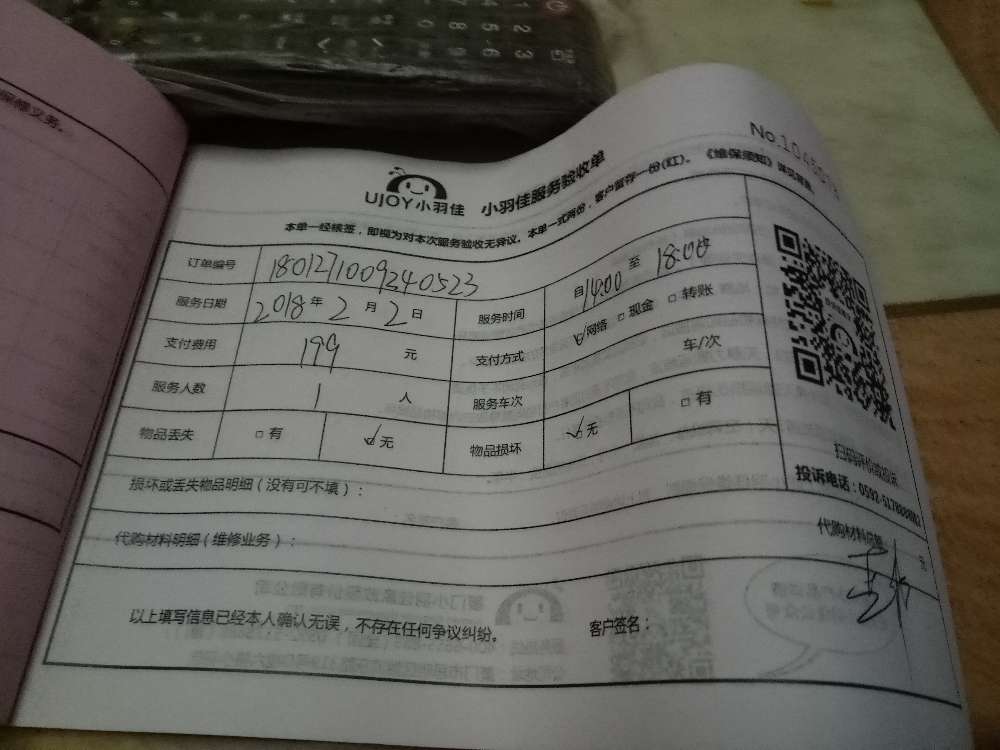 保修义务。
No.1045
UJOY小羽佳 小羽佳服务验收单
本单一经核签，即视为对本次服务验收无异议。本单一式两份，客户留存一份(红)。《维保须知》详见背面
订单编号 1801271009240523
服务日期 2018年2月2日 服务时间 自14:00至18:00
支付费用 199元 支付方式 ☑网络 □现金 □转账
服务人数 1人 服务车次 车/次
物品丢失 □有 ☑无 物品损坏 ☑无 □有
扫码评价或投诉
投诉电话：0592-5178888
损坏或丢失物品明细（没有可不填）：
代购材料明细（维修业务）： 代购材料总额 元
以上填写信息已经本人确认无误，不存在任何争议纠纷。 客户签名：